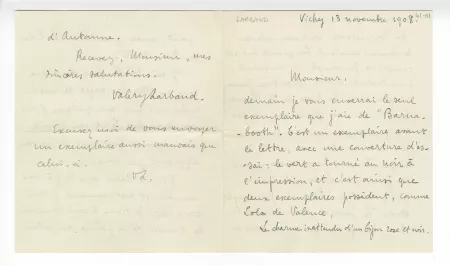 LARBAUD
Vichy 13 novembre 1908.
Monsieur.
demain je vous enverrai le seul
exemplaire que j'aie de "Barna-
-booth". C'est un exemplaire avant
la lettre, avec une couverture d'es-
-sai: le vert a tourné au noir à
l'impression, et c'est ainsi que
deux exemplaires possèdent, comme
Lola de Valence,
Le charme inattendu d'un bijou rose et noir.
d'Automne.
Recevez, Monsieur, mes
sincères salutations.
Valery Larbaud.
Excusez moi de vous envoyer
un exemplaire aussi mauvais que
celui-ci.
V.L.